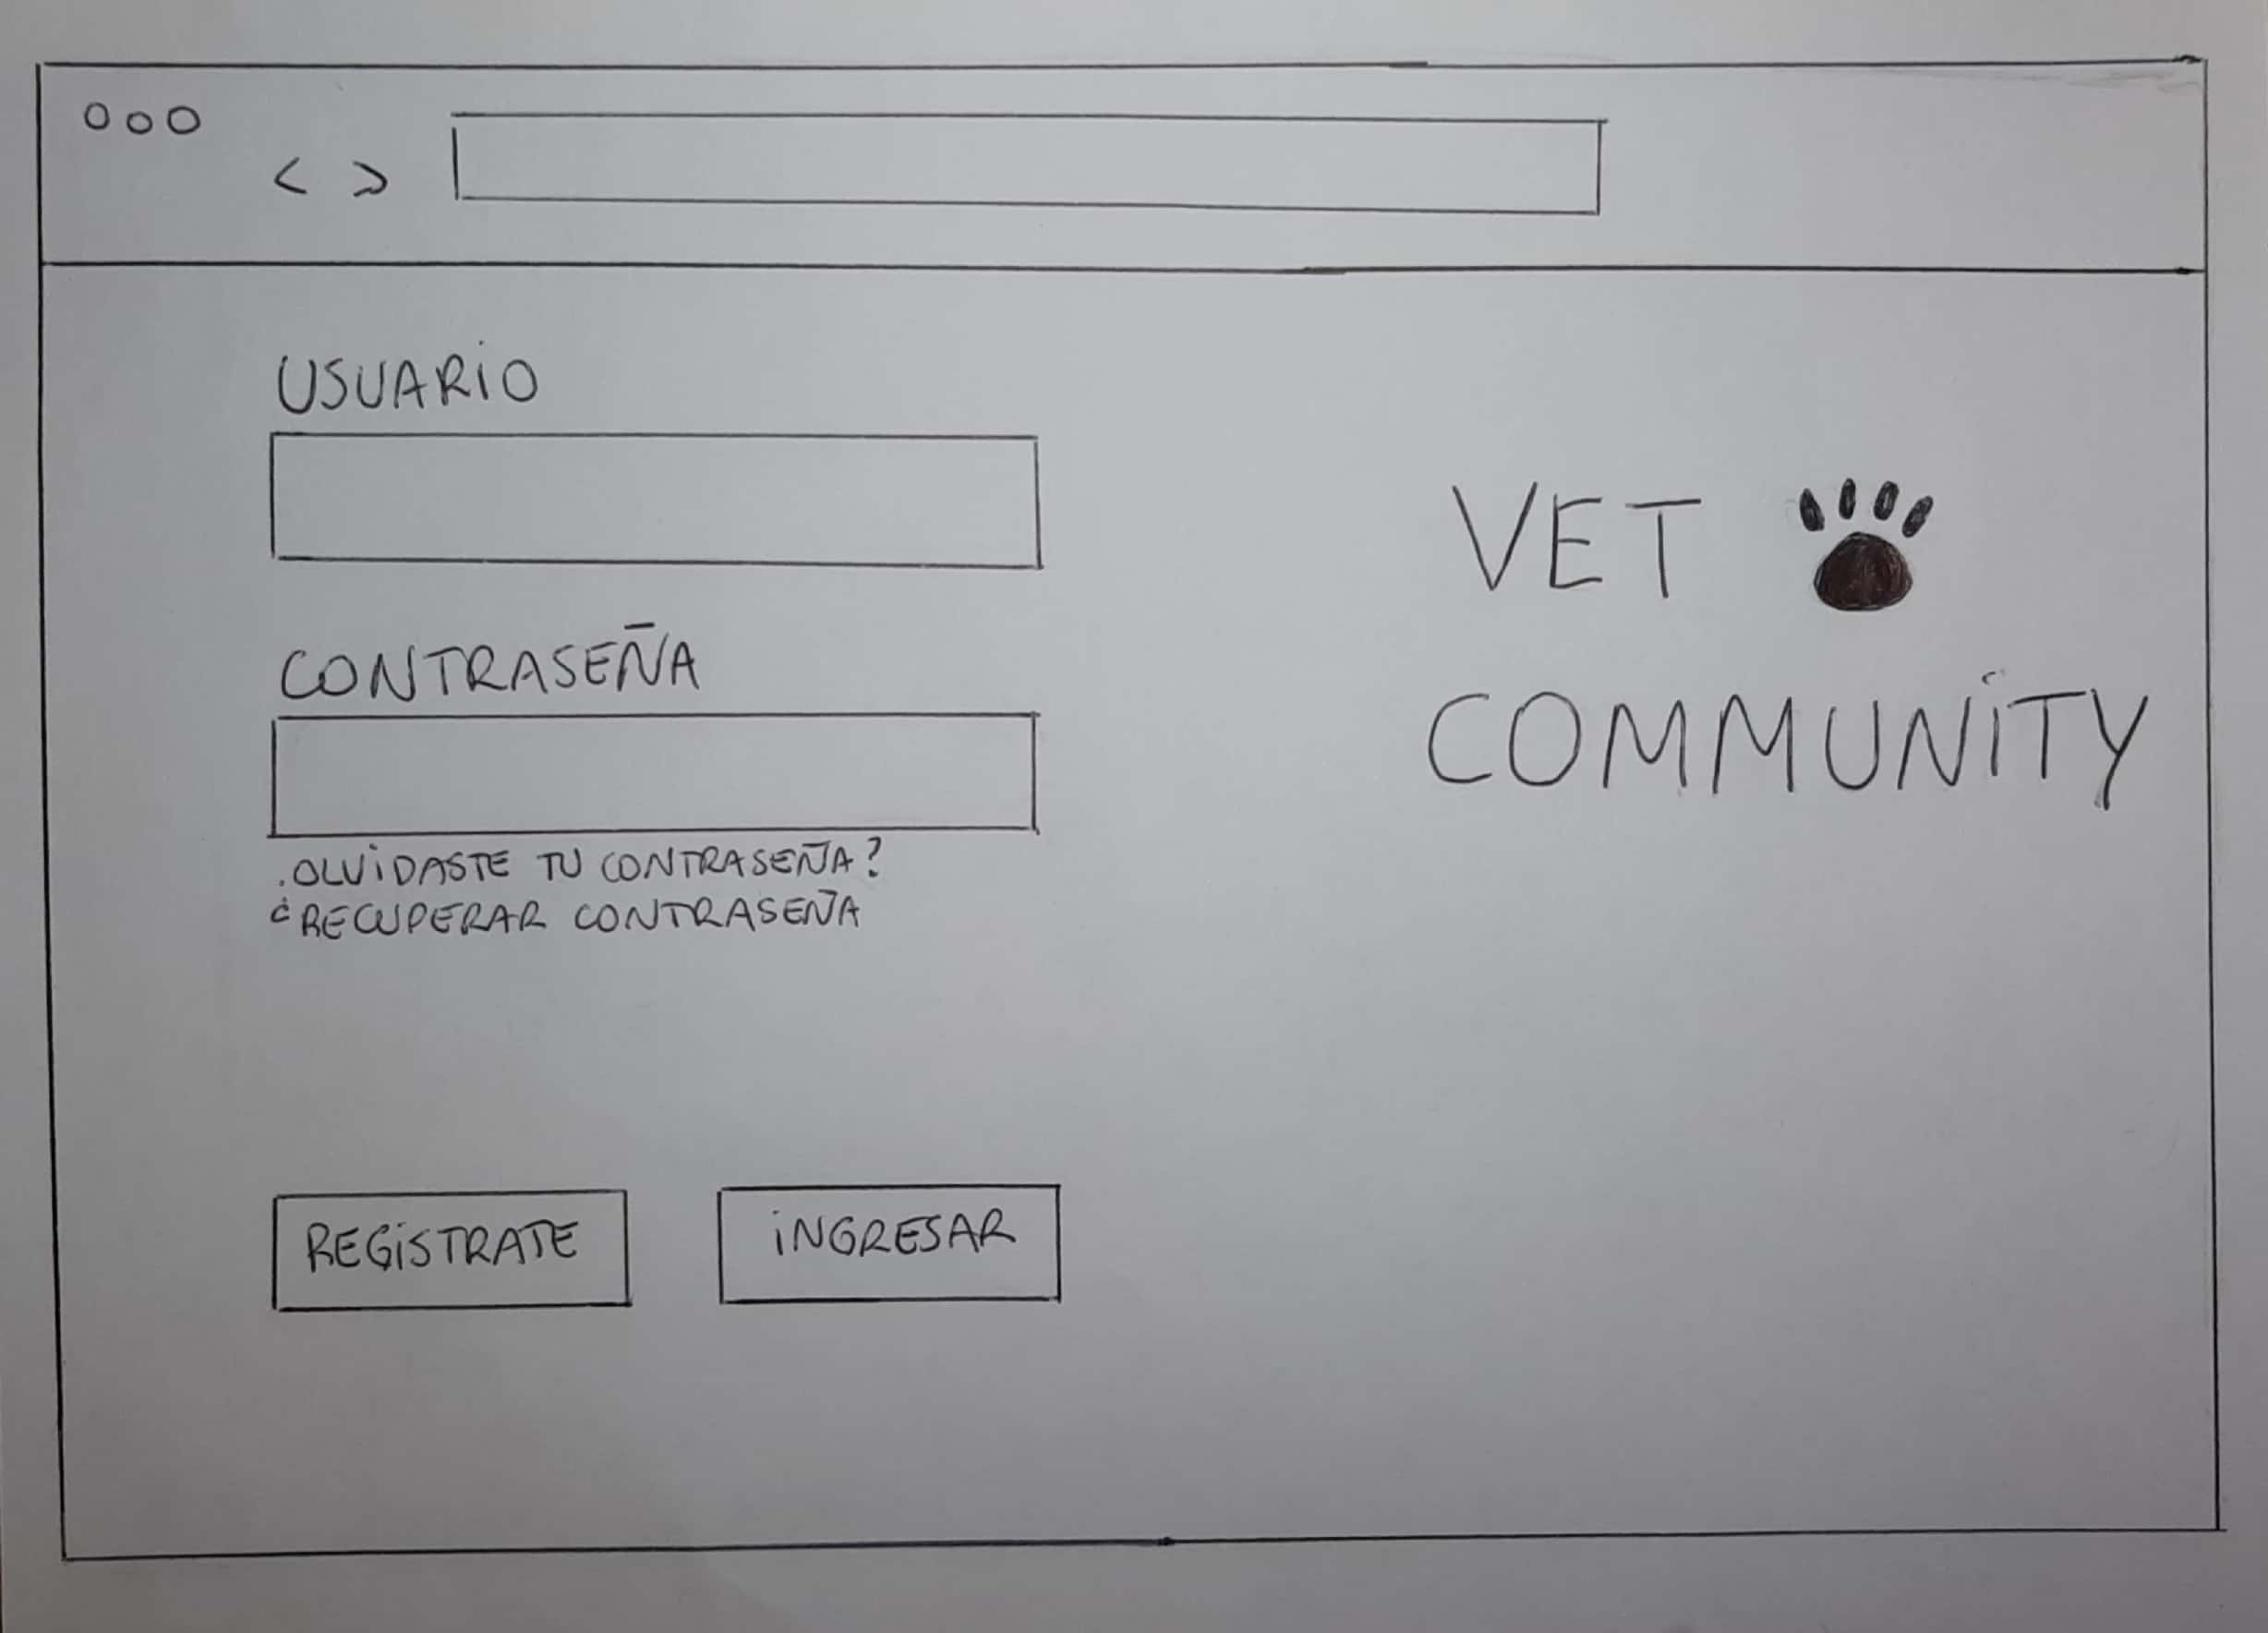 < >
USUARIO
CONTRASEÑA
¿OLVIDASTE TU CONTRASEÑA?
RECUPERAR CONTRASEÑA
REGISTRATE
INGRESAR
VET
COMMUNITY